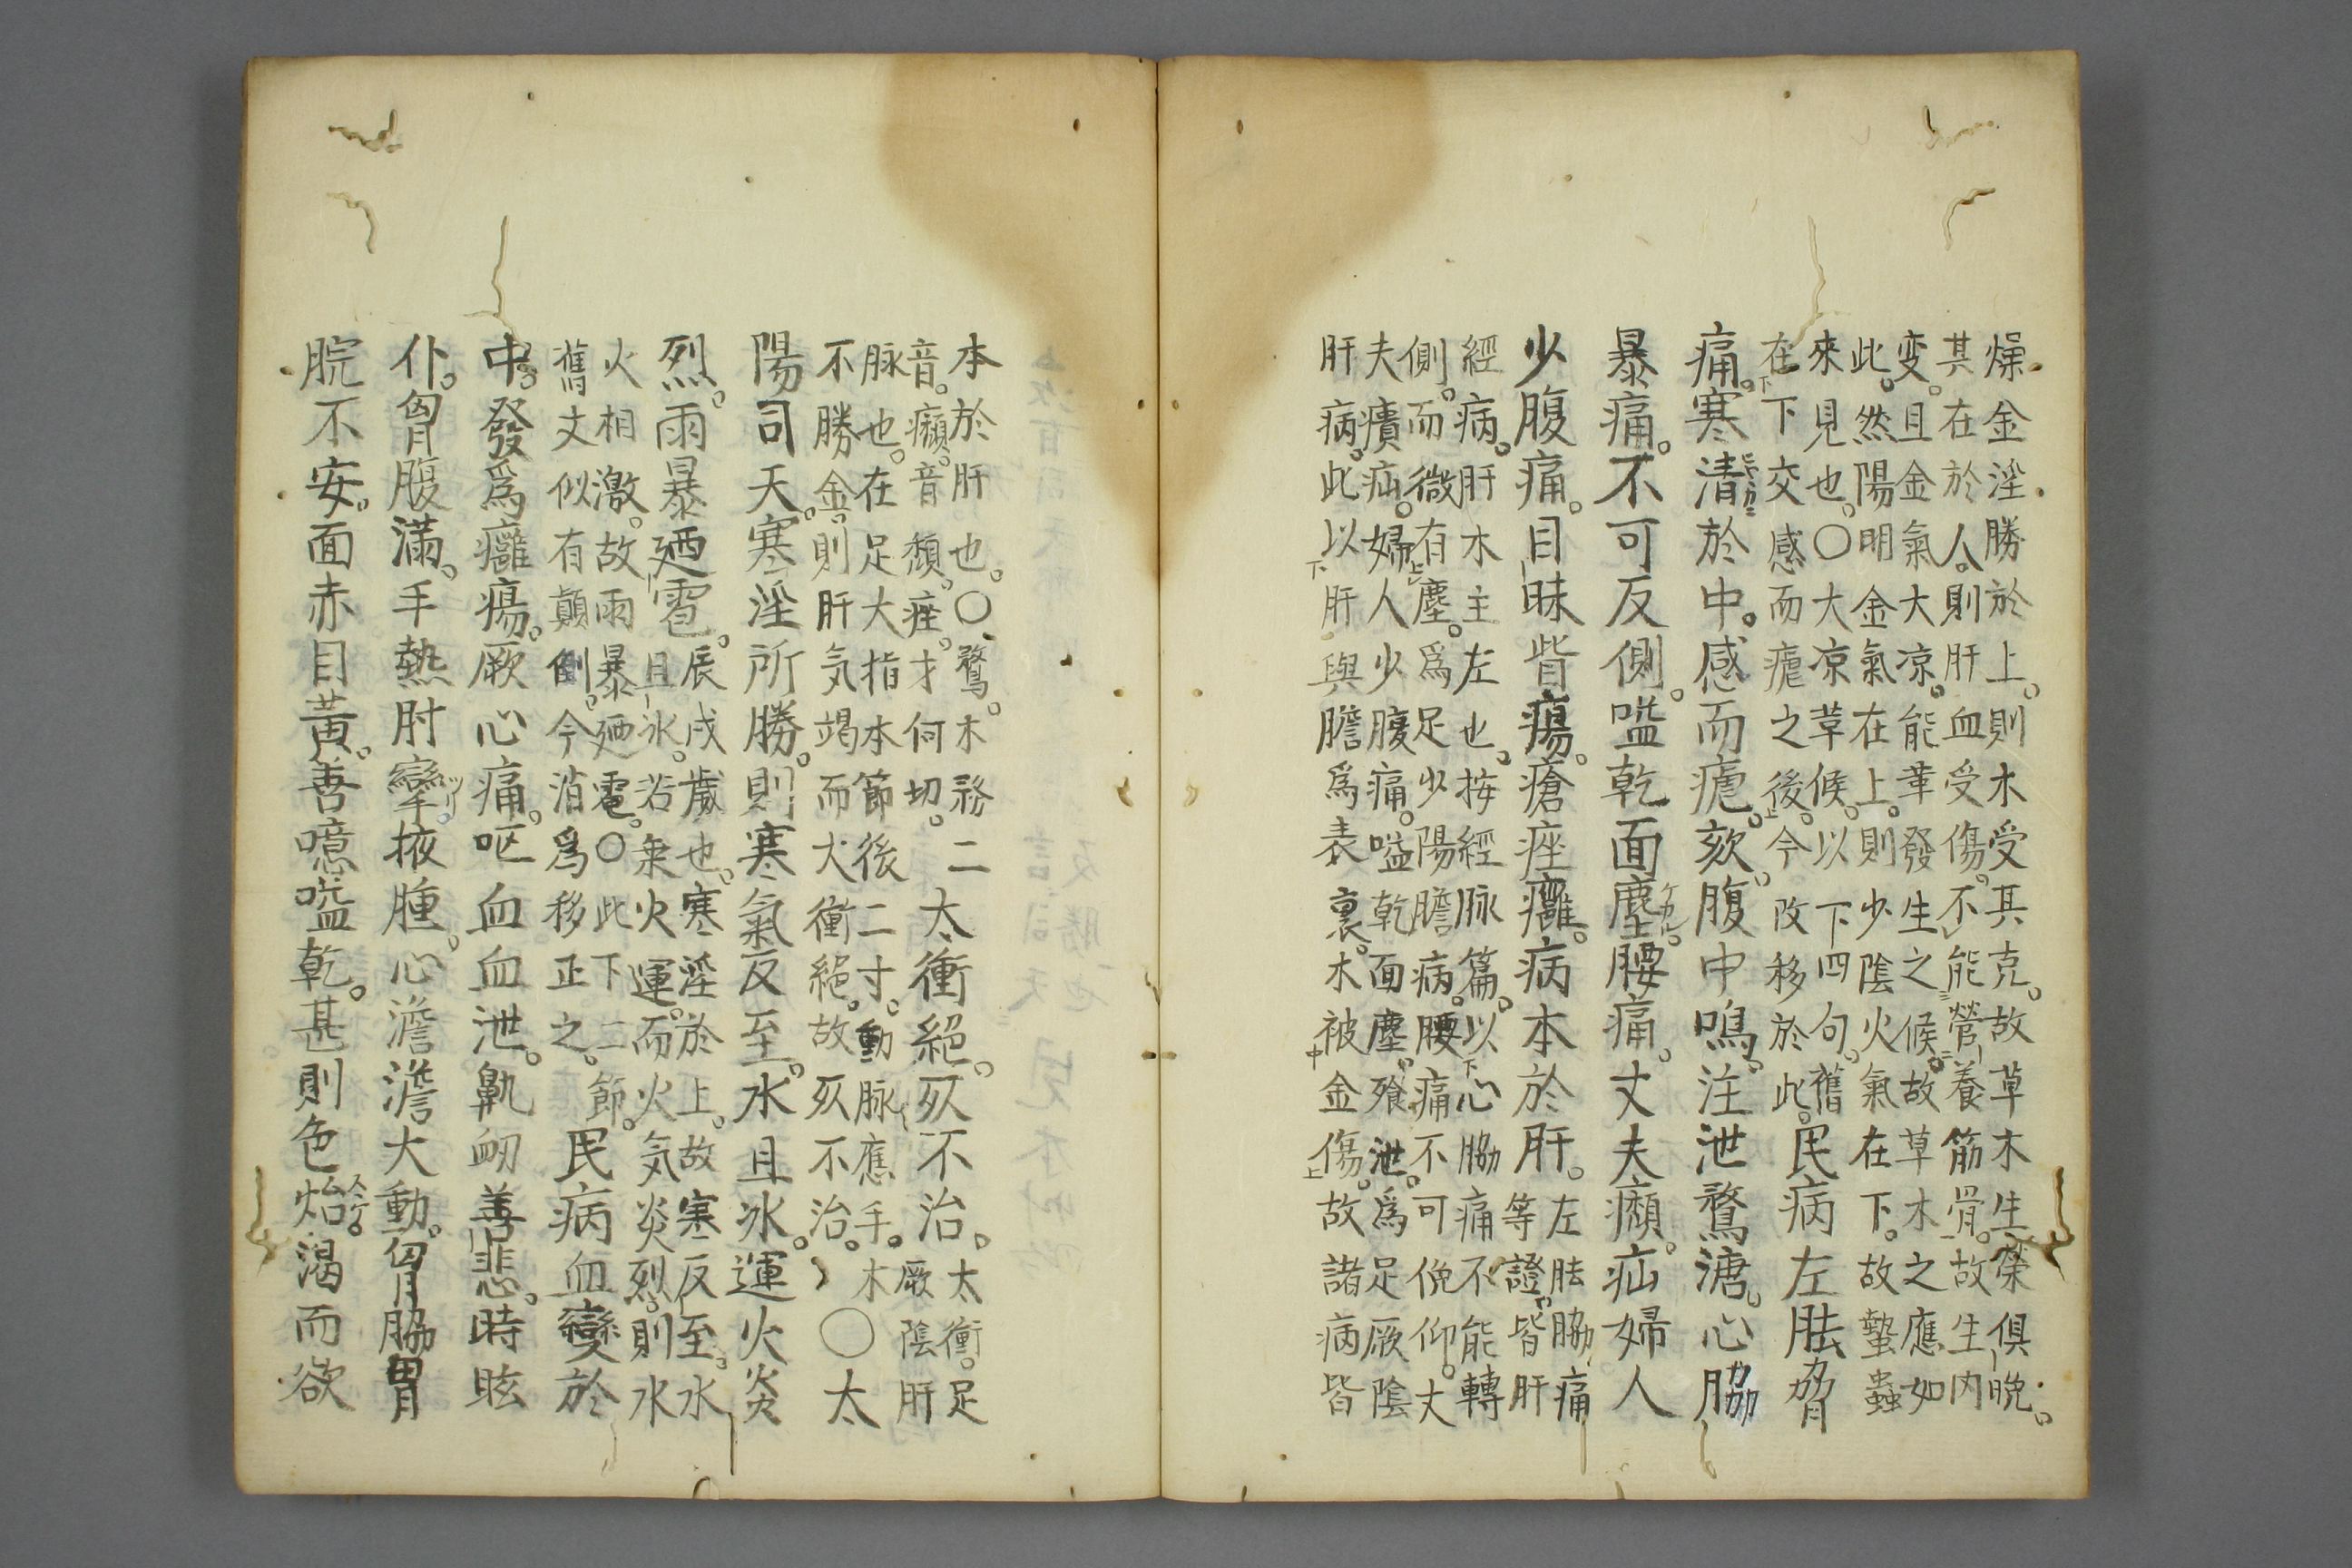 燥金淫勝於上。則木受其克。故草木生榮俱晚。
其在於人。則肝血受傷。不能營養筋骨。故生内
変。且金氣大凉。能革發生之候。故草木之應如
此。然陽明金氣在上。則少陰火氣在下。故蟄蟲
來見也。〇大凉草候。以下四句。舊
在下交感而瘧之後。今改移於此。
民病左胠脅
痛。寒清於中。感而瘧。欬。腹中鳴。注泄鶩溏。心脇
暴痛。不可反側。嗌乾面塵。腰痛。丈夫㿗疝。婦人
少腹痛。目昧眥瘍。瘡痤癰。病本於肝。
左胠脇痛
等證。皆肝
經病。肝木主左也。按經脉篇。以心脇痛不能轉
側。而微有塵。爲足少陽膽病。腰痛不可俛仰。丈
夫㿉疝。婦人少腹痛。嗌乾面塵。飱泄。爲足厥陰
肝病。此以肝與膽爲表裏。木被金傷。故諸病皆
本於肝也。〇鶩。木
音。㿗。音頽。痤。才何切。
務二
太衝絕。死不治。
太衝。足
厥陰肝
脉也。在足大指本節後二寸。動脉應手。木
不勝金。則肝気竭而太衝絕。故死不治。
〇太
陽司天。寒淫所勝。則寒氣反至。水且冰。運火炎
烈。雨暴廼雹。
辰戌歲也。寒淫於上。故寒反至。水
且冰。若乘火運。而火気炎烈。則水
火相激。故雨暴廼雹。〇此下二節。
舊文似有顛倒。今消爲移正之。
民病血變於
中。發爲癰瘍。厥心痛。呕血血泄。鼽衂善悲。時眩
仆。胷腹滿。手熱肘攣掖腫。心澹澹大動。胷脇胃
脘不安。面赤目黃。善噫嗌乾。甚則色炲。渴而欲